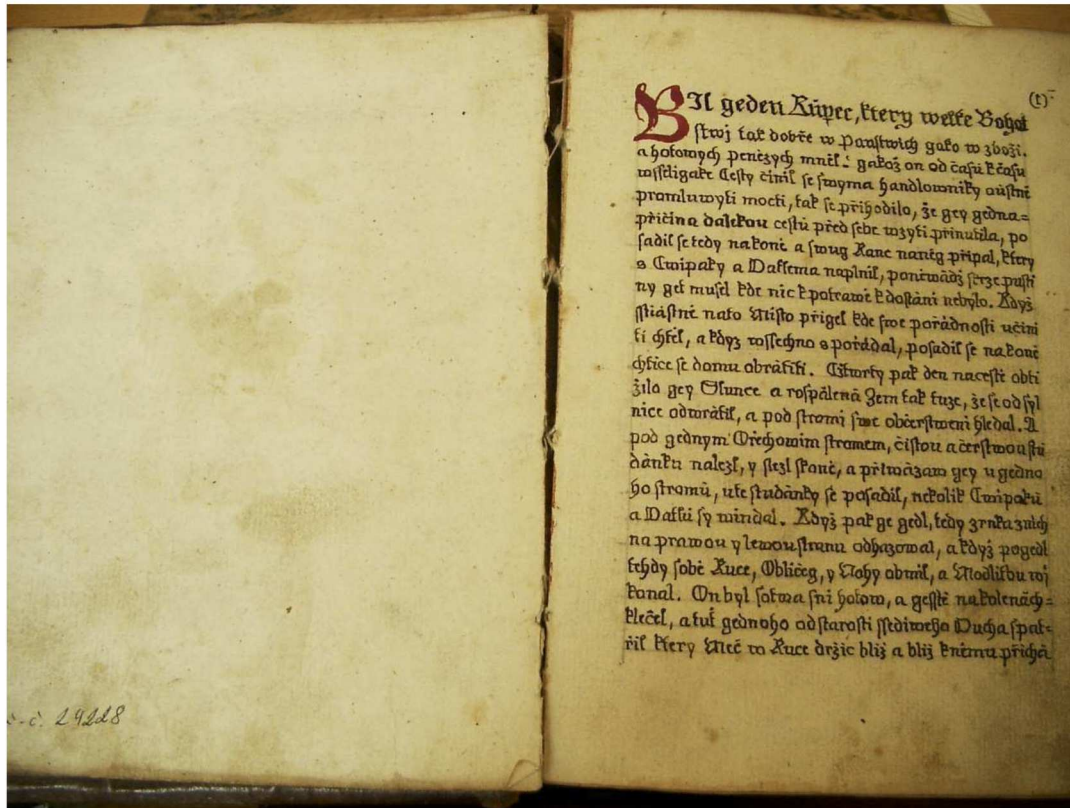 29228
(1)
Bil geden Kúpec, ktery welke Bohat
stwj tak dobře w Panstwich gako w zboži.
a hotowych penězych mněl: gakož on od časú k času
wsseligake Cesty činil se swyma handlowniky aústně
promluwyti mocti, tak se přihodilo, že gey gedna=
přičina dalekou cestú před sebe wzyti přinutila, po
sadil se tedy na koně a swug Ranc naněg připal, ktery
s Cwipaky a Datlema naplnil, poněwádž skrze pusti
ny get musel kde nic k potrawě k dostáni nebylo. Když
sstiástně nato Misto přigel kde swe pořádnosti učini
ti chtěl, a když wssechno spořádal, posadil se na koně
chtice se domu obrátiti. Cžtwrty pak den na cestě obti
žilo gey Slunce a rospálená Zem tak tuze, že se od syl
nice odwrátil, a pod stromi swe občerstweni hledal. A
pod gednym Ořechowim stromem, čistou a čerstwou stu
dánku nalezl, y slezl skoně, a přiwázaw gey u gedno
ho stromú, ute studánky se posadil, několik Cwipakú
a Datlú sy windal. Když pak ge gedl, tedy zrnka znich
na prawou y lewou stranu odhazowal, a když pogedl
tehdy sobě Ruce, Obličeg, y Nohy obmil, a Modlitbu wy
konal. On byl sotwa sni hotow, a gesstě na kolenách=
klečel, a tuť gednoho od starosti ssediweho Ducha spat=
řil ktery Meč w Ruce držic bliž a bliž knému přichá